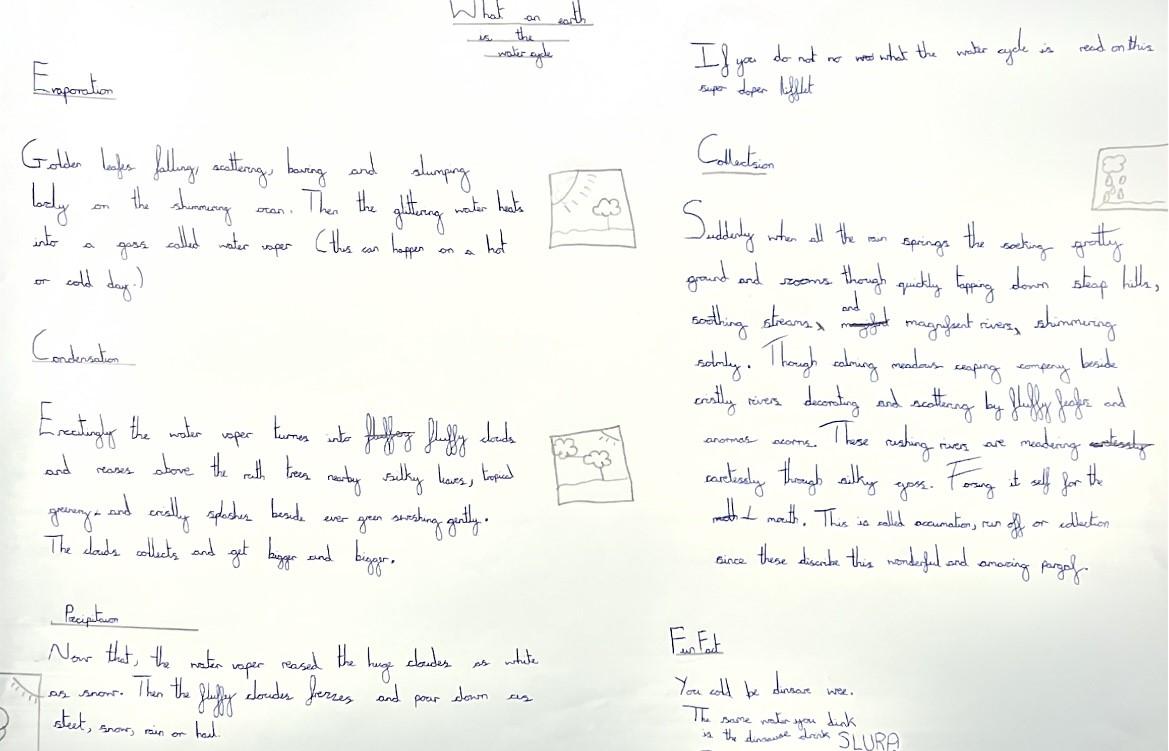 What on earth
is the
water cycle
Evaporation
Golden leafes falling, scattering, and slumping
on the shimmering ocan. Then the glittering water heats
into a gass called water vaper (this can happen on a hot
or cold day.)
Condensation
Excitingly the water vaper turnes into fluffy clouds
and reases above the trees nearby silky leaves, tropical
greenery and cristly splashes beside ever green swishing gently.
The clouds collects and get bigger and bigger.
Precipitaion
Now that, the water vaper reased the huge cloudes as white
as snow. Then the fluffy cloudes frezzes and pour down as
sleet, snow, rain or hail.
If you do not no what the water cycle is read on this
super doper lifflet
Collectsion
Suddenly when all the rain springs the soking grotty
ground and zooms though quickly tapping down steap hills,
soothing streams, and magnifisent rivers, shimmering
solmly. Though calming meadows ceaping company beside
cristly rivers decorating and scattering by fluffy and
acorns. These rushing rivers are meadering
carelessly through silky gass. Forsing it self for the
mouth. This is called accumation, run off or collection
since these discribe this wonderful and amazing
Fun Fact
You colld be dinsare wee.
The same water you dink
is the dinsause drink SLURP